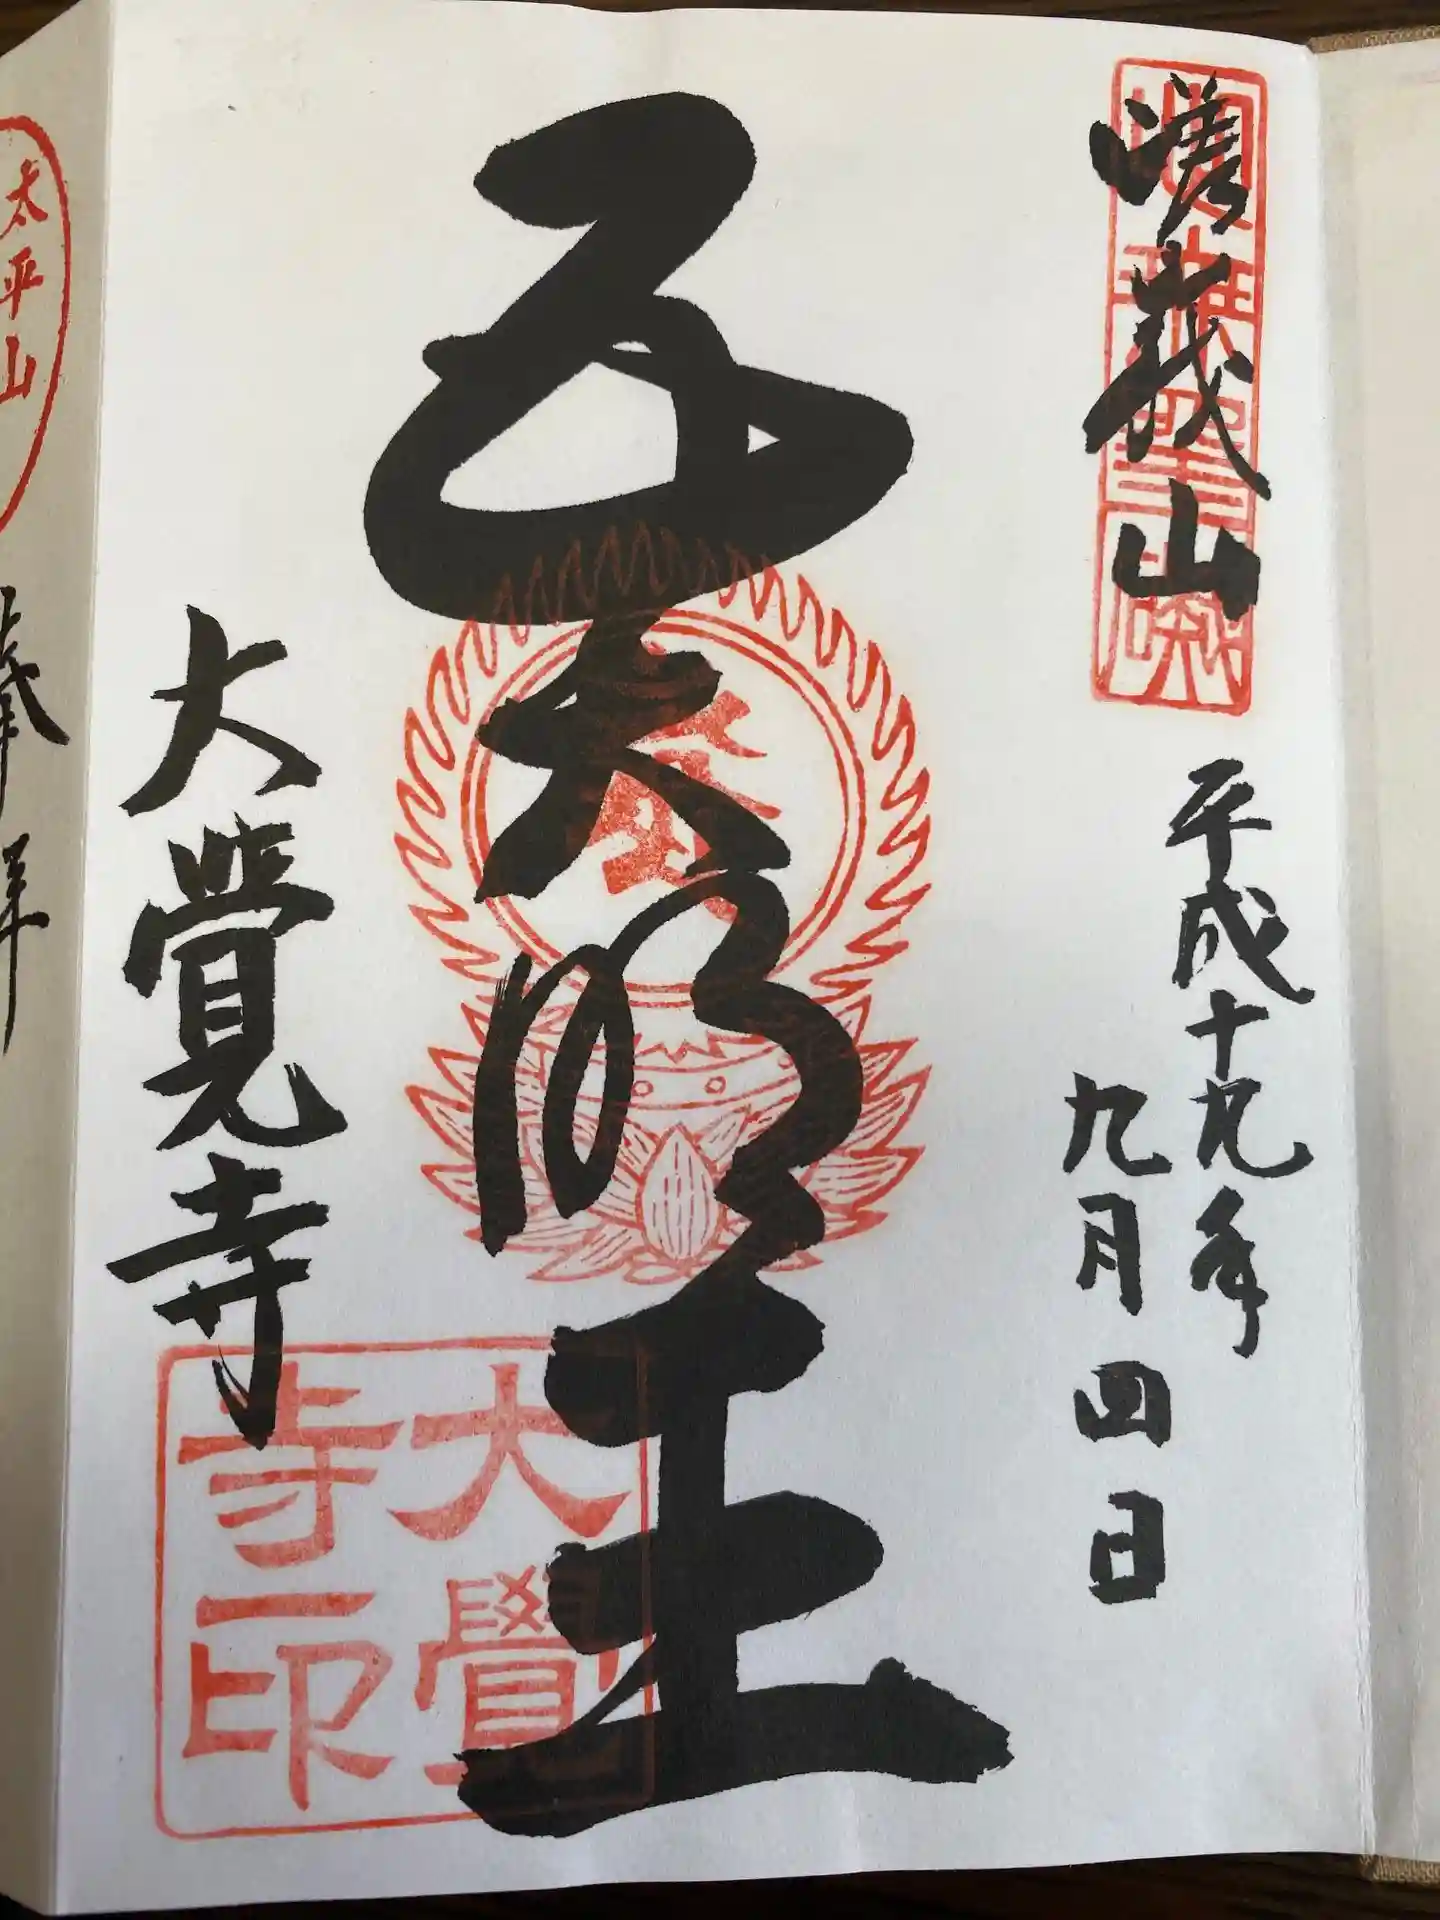 嵯峨山
平成十九年
九月四日
五大明王
大覺寺
大覺
寺印
太平山
奉拝